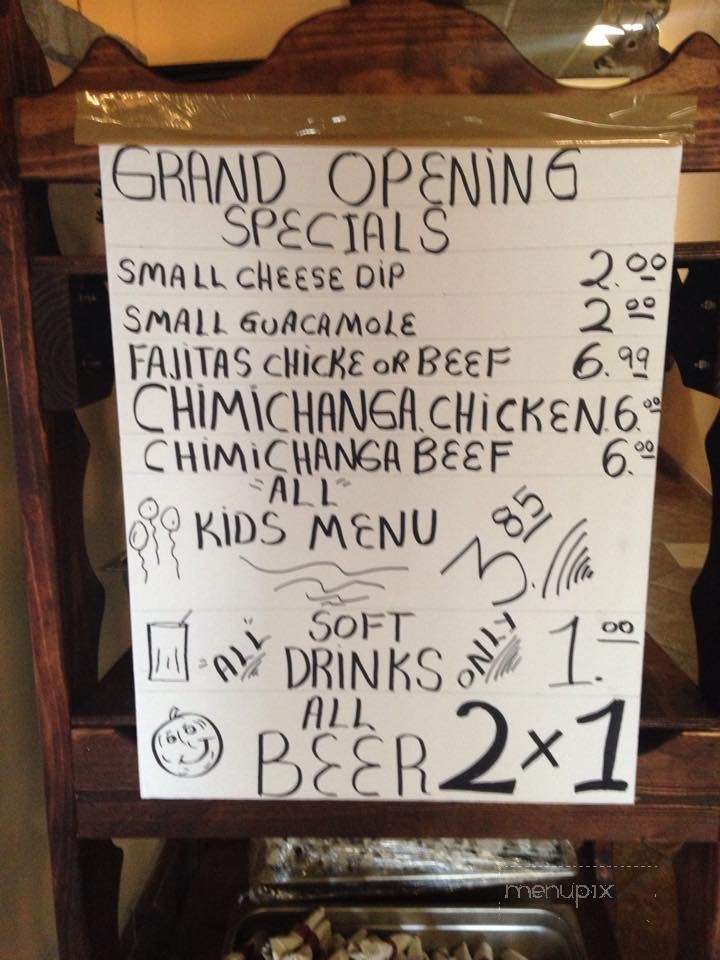 GRAND OPENING
SPECIALS
SMALL CHEESE DIP 2.00
SMALL GUACAMOLE 2.00
FAJITAS CHICKE OR BEEF 6.99
CHIMICHANGA. CHICKEN. 6.00
CHIMICHANGA BEEF 6.00
"ALL"
KIDS MENU 3.85
SOFT
"ALL" DRINKS ONLY 1.00
ALL
BEER 2x1
menupix